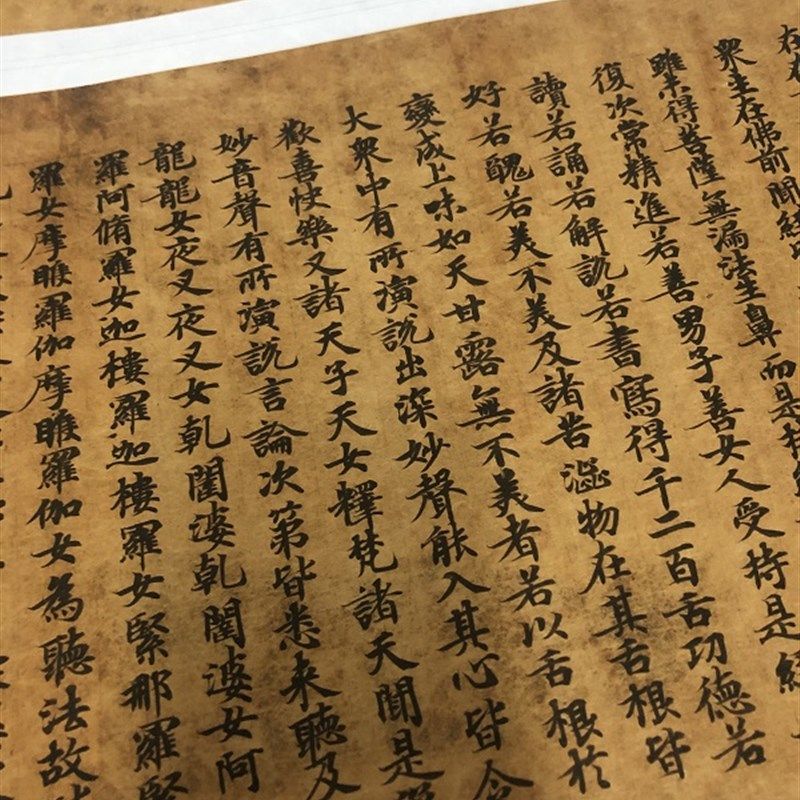 在在
眾生在佛前聞經
雖未得菩薩無漏法生鼻而是持
復次常精進若善男子善女人受持是經
讀若誦若解說若書寫得千二百舌功德若
好若醜若美不美及諸苦澁物在其舌根皆
變成上味如天甘露無不美者若以舌根於
大眾中有所演說出深妙聲能入其心皆令
歡喜快樂又諸天子天女釋梵諸天聞是深
妙音聲有所演說言論次第皆悉来聽及
龍龍女夜叉夜叉女乹闥婆乹闥婆女阿
羅阿脩羅女迦樓羅迦樓羅女緊那羅緊
羅女摩睺羅伽摩睺羅伽女為聽法故